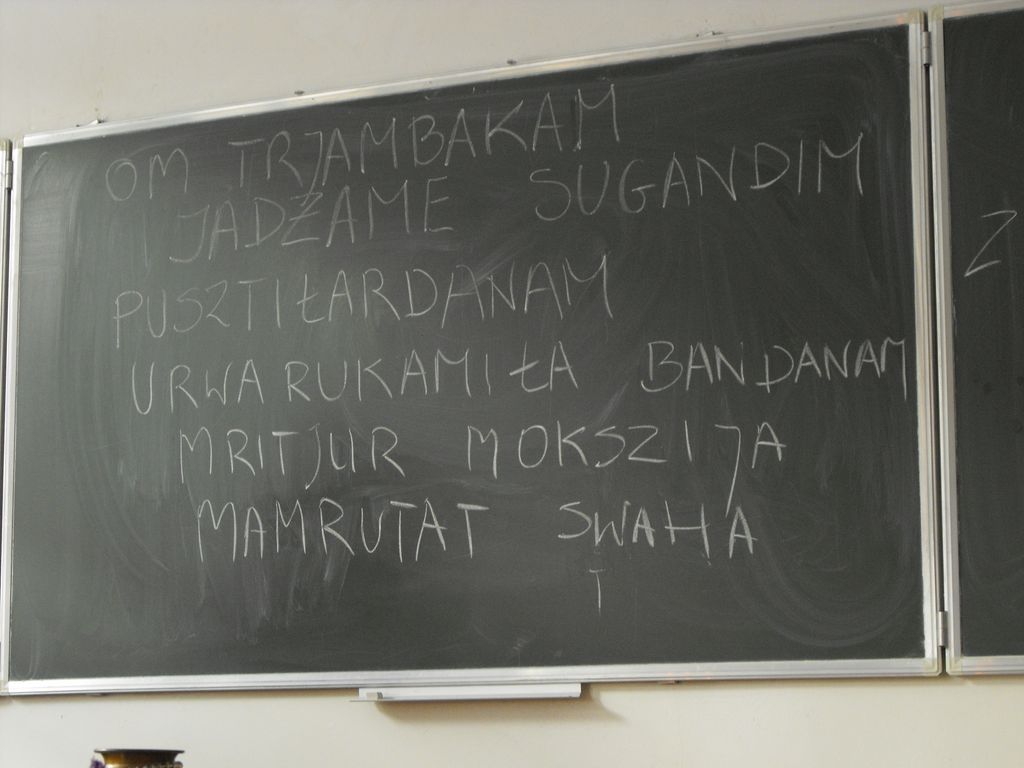 OM TRJAMBAKAM
JADŻAME SUGANDIM
PUSZTIŁARDANAM
URWARUKAMIŁA BANDANAM
MRITJUR MOKSZIJA
MAMRUTAT SWAHA
Z